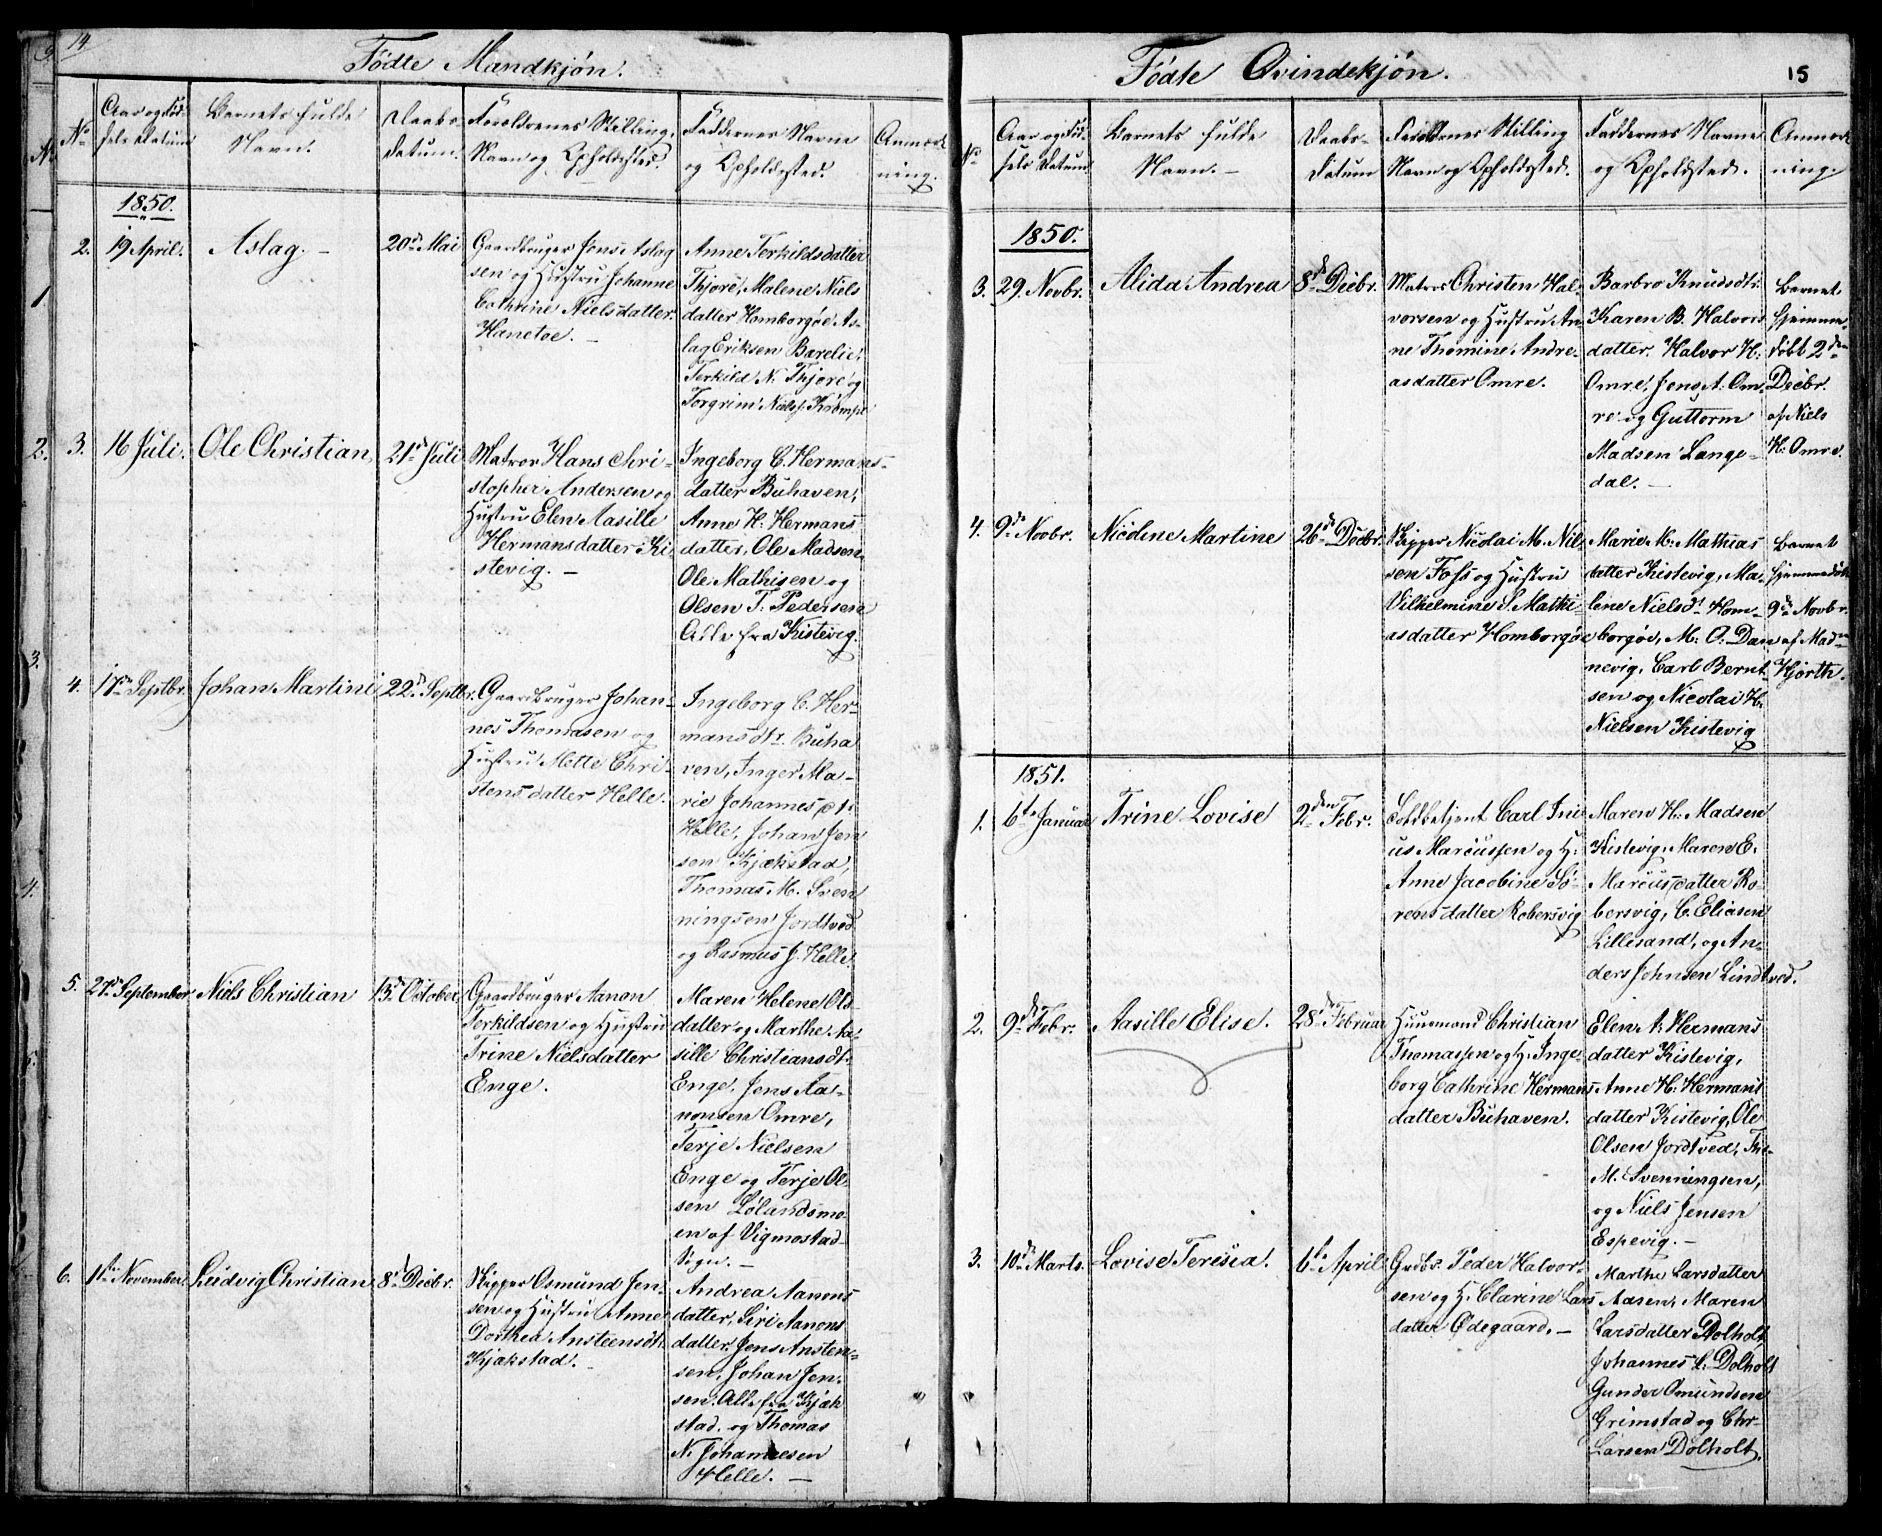 14
Fødte Mandkjøn.
No
Aar og Fød-
sels Datum
Barnets fulde
Navn.
Daabs-
Datum.
Forældrenes Stilling,
Navn og Opholdsted.
Faddernes Navne
og Opholdsted.
Anmærk
ning.
1850.
2.
19 April.
Aslag. –
20de Mai
Gaardbruger Jens Aslag
sen og Hustru Johanne
Cathrine Nielsdatter
Hanetoe. –
Anne Terkildsdatter
Thjøre, Malene Niels
datter Homborgøe As-
lag Eriksen Barelie,
Terkild N. Thjøre og
Torgrim Niels.
3.
16 Juli.
Ole Christian,
21de Juli
Matros Hans Chri-
stopher Andersen og
Hustru Elen Aasille
Hermansdatter Ki
stevig. –
Ingeborg C. Hermans-
datter Buhaven,
Anne H. Hermans
datter, Ole Madsen
Ole Mathisen og
Olsen T. Pedersen
Alle fra Kistevig.
4.
17de Septbr.
Johan Martini
22de Septbr.
Gaardbruger Johan-
nes Thomasen og
Hustru Mette Chri-
stensdatter Helle.
Ingeborg C. Her-
mansdtr. Buha
ven, Inger Ma-
rie Johannesdt.
Helle, Johan Jen
sen Kjækstad,
Thomas M. Sven
ningsen Jordtved
og Rasmus J. Helle.
5.
27de September
Niels Christian
13de October
Gaardbruger Aanon
Terkildsen og Hustru
Trine Nielsdatter
Enge.
Maren Helene Ols-
datter og Marthe Aa-
sille Christiansdt.
Enge. Jens Aa-
nonsen Omre,
Terje Nielsen
Enge og Terje Ol-
sen Lølandsmo-
en af Vigmostad
Sogn. –
6.
11te November
Ludvig Christian
8de Decbr.
Skipper Osmund Jen-
sen og Hustru Anne
Dorthea Ansteensdt.
Kjækstad. –
Andrea Aanons
datter, Siri Aanons
datter. Jens Ansten-
sen, Johan Jen-
sen. Alle fra Kjæk
stad. og Thomas
N. Johannesen
Helle. –
15
Fødte Qvindekjøn.
No
Aar og Fød-
sels Datum
Barnets fulde
Navn. –
Daabs-
Datum
Forældrenes Stilling
Navn og Opholdsted.
Faddernes Navne
og Opholdsted.
Anmærk
ning.
1850.
3.
29. Novbr.
Alida Andrea
8de Decbr.
Matros Christen Hal-
vorsen og Hustru An
ne Thomine Andre-
asdatter Omre.
Barbro Knudsdtr.
Karen B. Halvors
datter. Halvor H.
Omre, Jens A. Om-
re og Guttorm
Madsen Lange-
dal. –
Barnet
hjemme-
døbt 2den
Decbr.
af Niels
H. Omre.
4.
9de Novbr.
Nicoline Martine
26de Decbr.
Skipper Nicolai M. Niel
sen Foss og Hustru
Vilhelmine S. Mathi-
asdatter Homborgøe
Marie K. Mathias
datter Kistevig, Ma-
lene Nielsdt Hom-
borgøe, M. O. Dan
nevig, Carl Bernt
sen og Nicolai H.
Nielsen Kistevig
Barnet
hjemmedøbt
9de Novbr.
af Madm
Hjorth.
1851.
1.
6te Januar
Trine Lovise
2den Febr.
Toldbetjent Carl Juli
us Marcussen og H.
Anne Jacobine Sø-
rensdatter Robersvig
Maren H. Madsen
Kistevig, Maren E.
Marcusdatter Ro-
bersvig, C. Eliasen
Lillesand, og An-
ders Johnsen Lindtved.
2.
9de Febr.
Aasille Elise.
28de Februar
Huusmand Christian
Thomassen og H. Inge-
borg Cathrine Hermans
datter Buhaven.
Elen A. Hermans
datter Kistevig,
Anne H. Hermans
datter Kistevig, Ole
Olsen Jordtved, Th.
M. Svenningsen,
og Niels Jensen
Espevig. –
3.
10de Marts.
Lovise Teresia.
6te April
Grdbr. Peder Halvor-
sen og H. Clarine Lars
datter Ødegaard. –
Marthe Larsdatter
Aasen, Maren
Larsdatter Dolholt
Johannes L. Dolholt
Gunder Omundsen
Grimstad og Chr.
Larsen Dolholt.